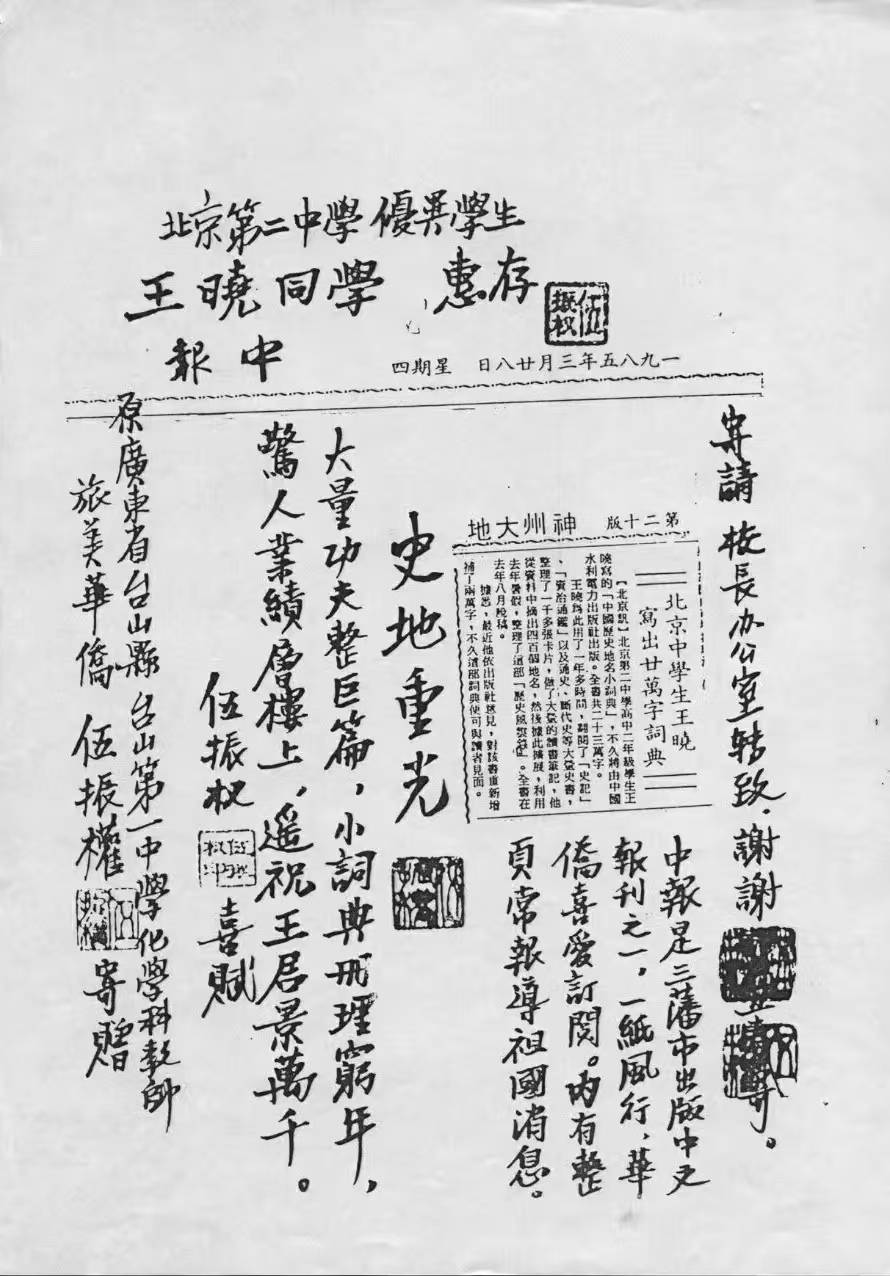 北京第二中學優異學生
王曉同學 惠存
伍振权
中報
一九八五年三月廿八日 星期四
寄請 校長办公室转致·謝謝
第二十版 神州大地
北京中學生王曉
寫出廿萬字詞典
【北京訊】北京第二中學高中二年級學生王
曉寫的「中國歷史地名小詞典」,不久將由中國
水利電力出版社出版。全書共二十三萬字。
王曉爲此用了一年多時間,翻閱了「史記」
、「資治通鑑」以及通史、斷代史等大量史書,
整理了一千多張卡片,做了大量的讀書筆記,他
從資料中摘出四百個地名,然後據此擴展,利用
去年暑假,整理了這部「歷史 。全書在
去年八月脫稿。
據悉,最近他依出版社意見,對該書重新增
補了兩萬字,不久這部詞典便可與讀者見面。
中報是三藩市出版中文
報刊之一,一紙風行,華
僑喜愛訂閱。內有整
頁常報導祖國消息。
史地重光
大量功夫整巨篇,小詞典 理窮年,
驚人業績層樓上,遥祝王君景萬千。
伍振权 喜賦
原廣東省台山縣台山第一中學化學科教師
旅美華僑 伍振權 寄贈